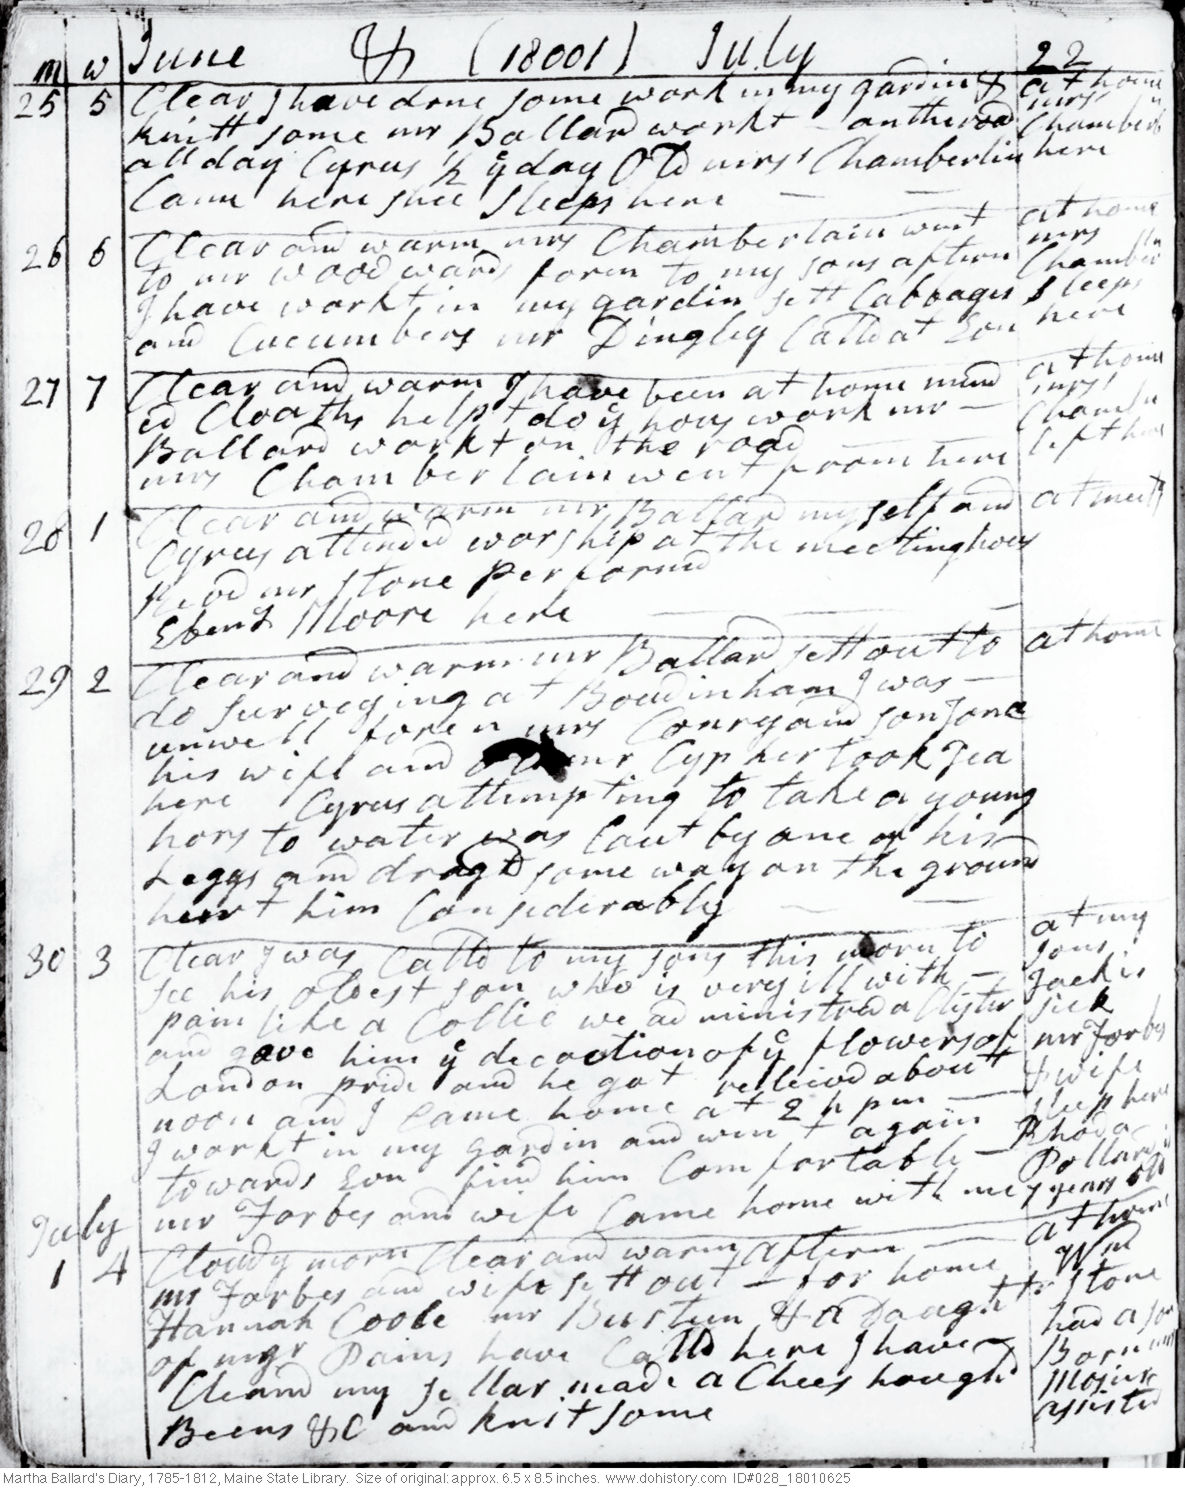 m w June & (18001) July 22
25 5 Clear I have done some work in my gardin & at home
knitt some mr Ballard workt on the road mrs Chamberl
all day Cyrus ½ ye day Old mrs Chamberlin here
Came here shee Sleeps here
26 6 Clear and warm mrs Chamberlain went at home
to mr woodwards foren to my sons aftern mrs Chamber
I have workt in my gardin sett Cabbages Sleeps
and Cucumbers mr Dingley Calld at Evn here
27 7 Clear and warm I have been at home mend at home
ed Cloaths helpt do ye hous work mr mrs
Ballard workt on the road Chamb
mrs Chamberlain went from here left here
28 1 Clear and warm mr Ballard my self and at meetg
Cyrus attended worship at the meeting hous
Revd mr Stone performd
Ebenr Moore here
29 2 Clear and warm mr Ballard sett out to at home
do surveying at Bowdinham I was
unwell foren mrs Conry and son Jona
his wife and mr Cypher took Tea
here Cyrus attempting to take a young
hors to water was Caut by one of his
Leggs and dragd some way on the ground
heurt him Considerably
30 3 Clear I was Calld to my sons this morn to at my
see his oldest son who is very ill with sons
pain like a Collic we administred a Clister Jack is sick
and gave him ye decoction of ye flowers of mr Forbes
London pride and he got releivd about & wife
noon and I Came home at 2 h pm sleep here
I workt in my gardin and went again Rhoda
towards Evn find him Comfortable Pollard
mr Forbes and wife Came home with me 7 years old
July
1 4 Cloudy morn Clear and warm aftern at home
mr Forbes and wife sett out for home Wm
Hannah Coole mr Burtun & a Daught Stone
of majr Pains have Calld here I have had a son
Cleand my sellar made a Chees hough Born
Beens &C and knit some mrs Mosure asisted
Martha Ballard's Diary, 1785-1812, Maine State Library. Size of original: approx. 6.5 x 8.5 inches. www.dohistory.com ID#028_18010625